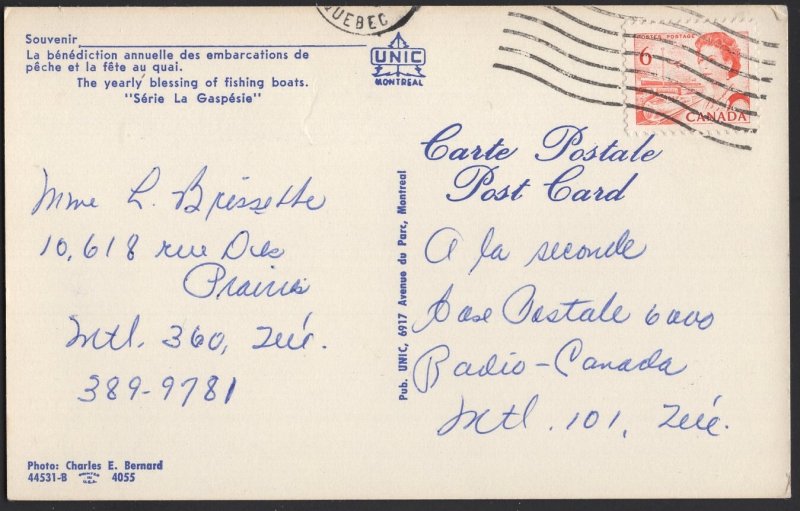 QUEBEC
Souvenir
La bénédiction annuelle des embarcations de
pêche et la fête au quai.
The yearly blessing of fishing boats.
"Série La Gaspésie"
UNIC
MONTREAL
POSTES POSTAGE
6
CANADA
Carte Postale
Post Card
Mme L. Brissette
10,618 rue Des
Prairies
Mtl. 360, Qué.
389-9781
Pub. UNIC, 6917 Avenue du Parc, Montreal
A la seconde
Case Postale 6000
Radio-Canada
Mtl. 101, Qué.
Photo: Charles E. Bernard
44531-B PRINTED IN U.S.A. 4055